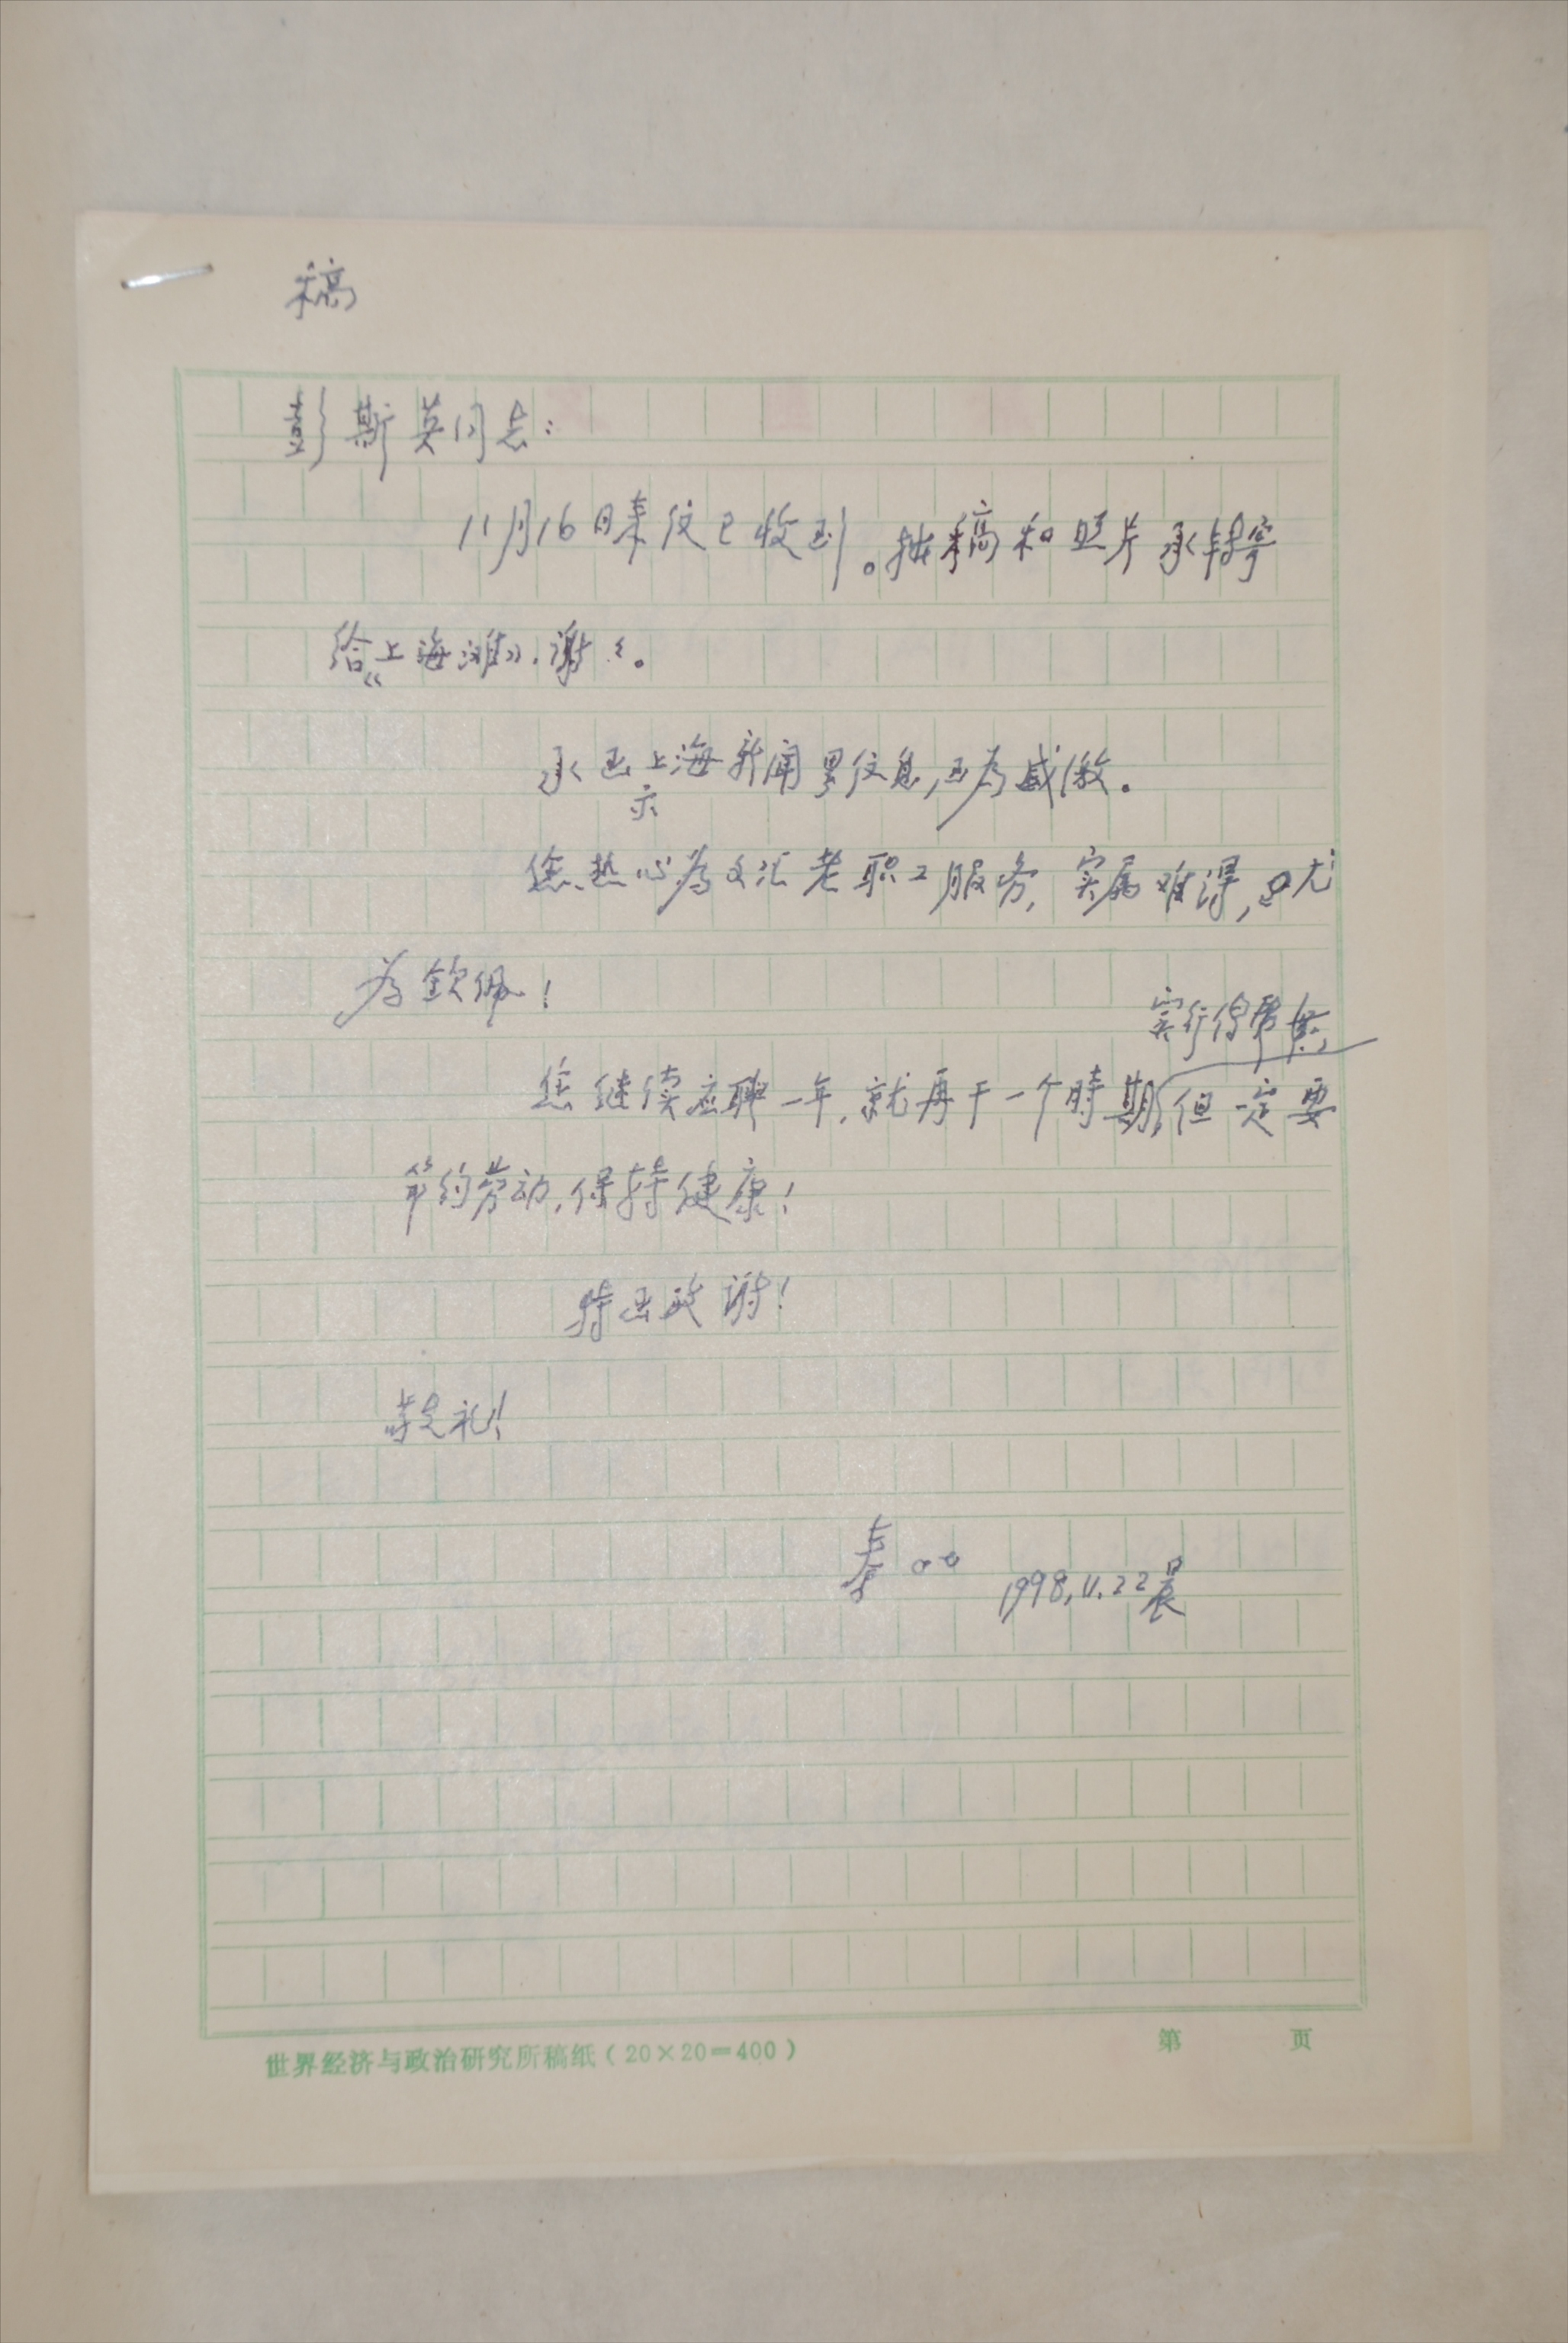 稿
彭斯英同志:
11月16日来信已收到。拙稿和照片承转寄
给《上海滩》,谢々。
承函示上海新闻界信息,至为感激。
您热心为文汇老职工服务,实属难得,尤
为钦佩!
实行传帮带,
您继续应聘一年,就再干一个时期,但一定要
节约劳动,保持健康!
特函致谢!
敬礼!
1998.11.22晨
世界经济与政治研究所稿纸(20×20=400)
第 页